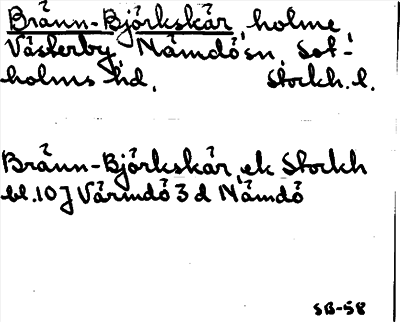 Bränn-Björkskär, holme,
Västerby, Nämdö sn, Sot-
holms hd, Stockh. l.
Bränn-Björkskär, ek Stockh
bl. 10 J Värmdö 3 d Nämdö
SB-58